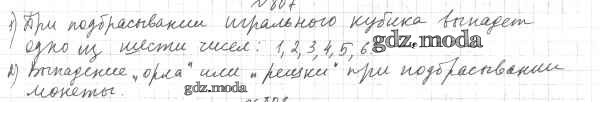 1) При подбрасывании игрального кубика выпадет
одно из шести чисел: 1, 2, 3, 4, 5, 6
gdz.moda
2) Выпадение „орла" или „решки" при подбрасывании
монеты.
gdz.moda